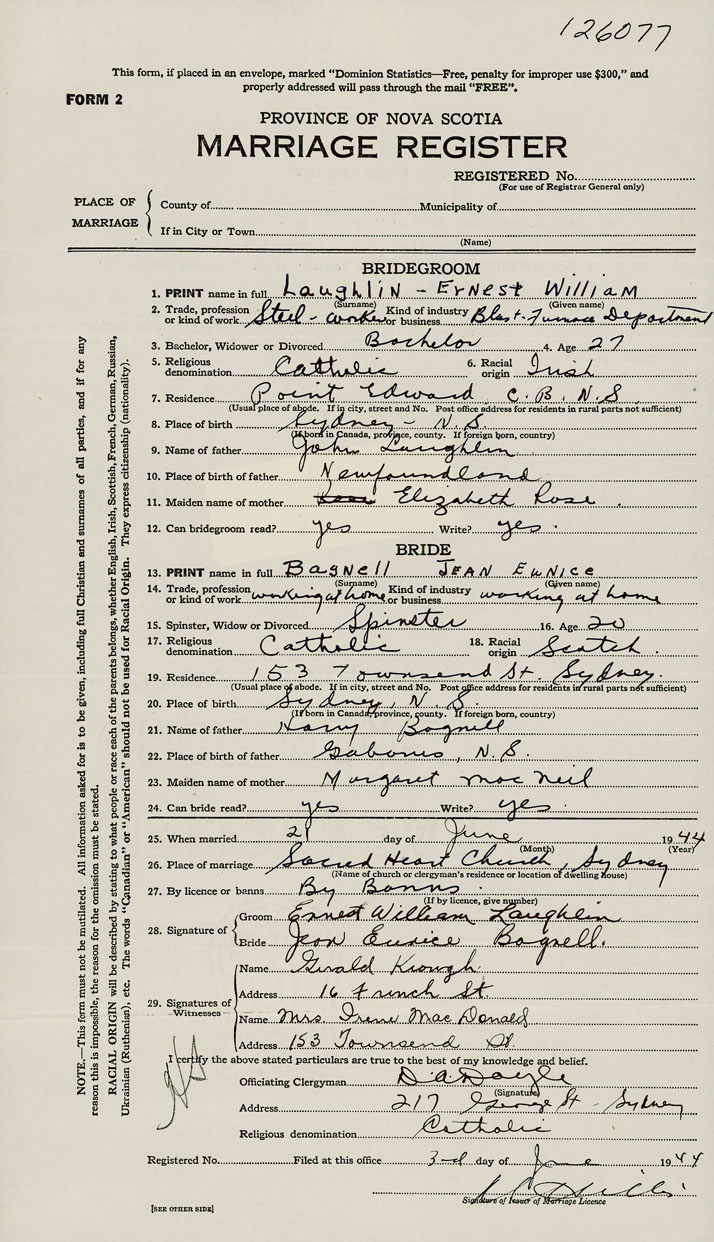 126077
This form, if placed in an envelope, marked "Dominion Statistics—Free, penalty for improper use $300," and
properly addressed will pass through the mail "FREE".
FORM 2
PROVINCE OF NOVA SCOTIA
MARRIAGE REGISTER
REGISTERED No.
(For use of Registrar General only)
PLACE OF MARRIAGE
County of Municipality of
If in City or Town
(Name)
BRIDEGROOM
1. PRINT name in full Laughlin - Ernest William
(Surname) (Given name)
2. Trade, profession or kind of work Steel-worker Kind of industry or business Blast-Furnace Department
3. Bachelor, Widower or Divorced Bachelor 4. Age 27
5. Religious denomination Catholic 6. Racial origin Irish
7. Residence Point Edward, C.B. N.S.
(Usual place of abode. If in city, street and No. Post office address for residents in rural parts not sufficient)
8. Place of birth Sydney - N.S.
(If born in Canada, province, county. If foreign born, country)
9. Name of father John Laughlin
10. Place of birth of father Newfoundland
11. Maiden name of mother Elizabeth Rose.
12. Can bridegroom read? yes Write? yes.
BRIDE
13. PRINT name in full Bagnell Jean Eunice
(Surname) (Given name)
14. Trade, profession or kind of work working at home Kind of industry or business working at home
15. Spinster, Widow or Divorced Spinster 16. Age 20
17. Religious denomination Catholic 18. Racial origin Scotch.
19. Residence 153 Townsend St. Sydney.
(Usual place of abode. If in city, street and No. Post office address for residents in rural parts not sufficient)
20. Place of birth Sydney, N.S.
(If born in Canada, province, county. If foreign born, country)
21. Name of father Harry Bagnell
22. Place of birth of father Gabarus, N.S.
23. Maiden name of mother Margaret MacNeil
24. Can bride read? yes Write? yes.
25. When married 21 day of June 1944
(Month) (Year)
26. Place of marriage Sacred Heart Church, Sydney
(Name of church or clergyman's residence or location of dwelling house)
27. By licence or banns By Banns.
(If by licence, give number)
28. Signature of
Groom Ernest William Laughlin
Bride Jean Eunice Bagnell.
29. Signatures of Witnesses
Name Gerald Keough
Address 16 French St
Name Mrs. Irene MacDonald
Address 153 Townsend St.
I certify the above stated particulars are true to the best of my knowledge and belief.
Officiating Clergyman D.A. Doyle
(Signature)
Address 217 George St - Sydney
Religious denomination Catholic
Registered No. Filed at this office 3rd day of June 1944
Signature of Issuer of Marriage Licence
[SEE OTHER SIDE]
NOTE.—This form must not be mutilated. All information asked for is to be given, including full Christian and surnames of all parties, and if for any
reason this is impossible, the reason for the omission must be stated.
RACIAL ORIGIN will be described by stating to what people or race each of the parents belongs, whether English, Irish, Scottish, French, German, Russian,
Ukrainian (Ruthenian), etc. The words "Canadian" or "American" should not be used for Racial Origin. They express citizenship (nationality).